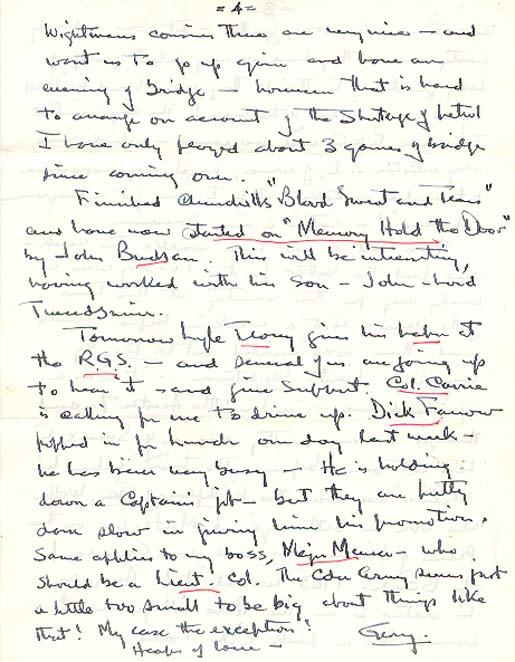 = 4 =
Wightmans cousins there are very nice – and
want us to go up again and have an
evening of bridge – however that is hard
to arrange on account of the shortage of petrol
I have only played about 3 games of bridge
since coming over.
Finished Churchill's "Blood Sweat and Tears"
and have now started on "Memory Hold the Door"
by John Buchan. This will be interesting,
having worked with his son – John – Lord
Tweedsmuir.
Tomorrow night gives his paper at
the R.G.S. – and several of us are going up
to hear it – and give support. Col. Currie
is calling for me to drive up. Dick
popped in for lunch one day last week –
he has been very busy – He is holding
down a Captain's job – but they are pretty
darn slow in giving him his promotion.
Same applies to my boss, Major – who
should be a Lieut. Col. The Cdn Army seems just
a little too small to be big about things like
that! My case the exception!
Heaps of love – Gerry.